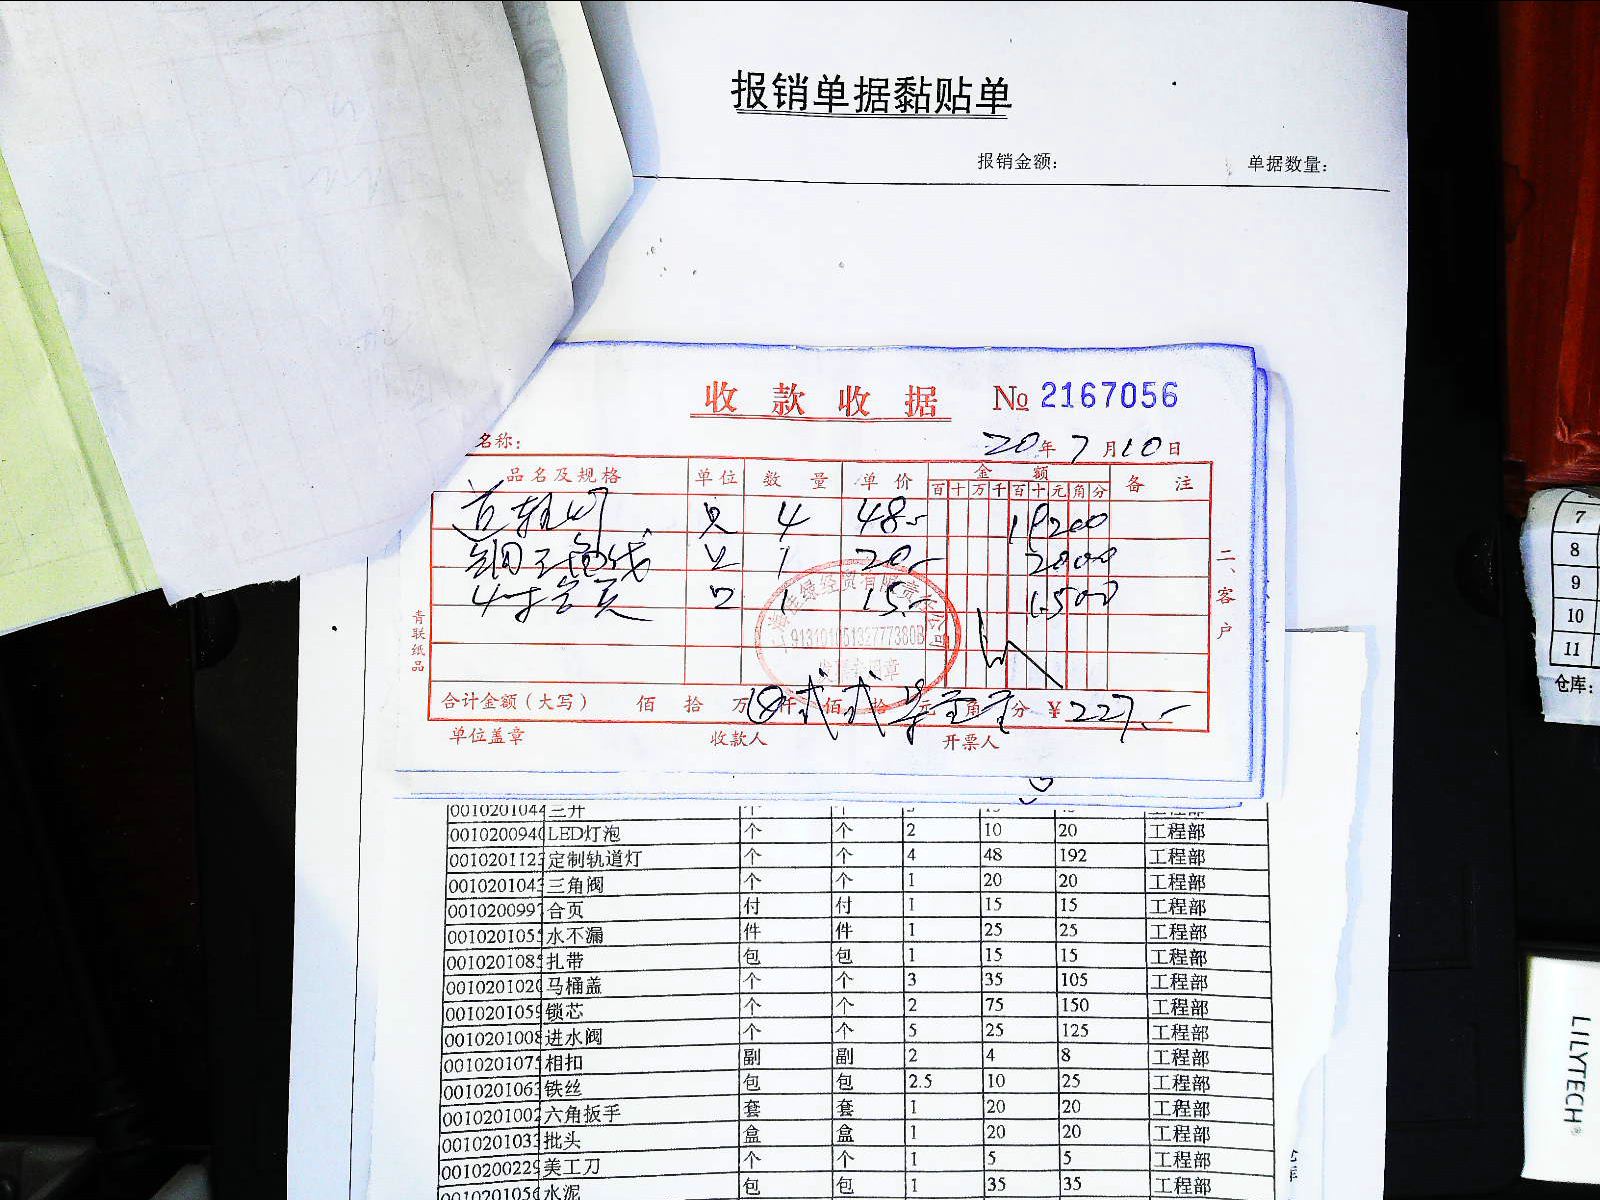 报销单据黏贴单
报销金额： 单据数量：
收款收据 № 2167056
名称： 20年7月10日
品名及规格 单位 数量 单价 金额 备注
百十万千百十元角分
只 4 48.- 19200
1 20.- 2000
4寸合页 只 1 15.- 1500
合计金额（大写） 佰 拾 万 仟 佰 拾 元 角 分 ¥227.-
单位盖章 收款人 开票人
二、客户
青联纸品
0010201044 三开
001020094 LED灯泡 个 个 2 10 20 工程部
001020112 定制轨道灯 个 个 4 48 192 工程部
001020104 三角阀 个 个 1 20 20 工程部
001020099 合页 付 付 1 15 15 工程部
001020105 水不漏 件 件 1 25 25 工程部
001020108 扎带 包 包 1 15 15 工程部
001020102 马桶盖 个 个 3 35 105 工程部
001020105 锁芯 个 个 2 75 150 工程部
001020100 进水阀 个 个 5 25 125 工程部
001020107 相扣 副 副 2 4 8 工程部
001020106 铁丝 包 包 2.5 10 25 工程部
001020100 六角扳手 套 套 1 20 20 工程部
001020103 批头 盒 盒 1 20 20 工程部
001020022 美工刀 个 个 1 5 5 工程部
001020105 水泥 包 包 1 35 35 工程部
7
8
9
10
11
仓库：
LILYTECH